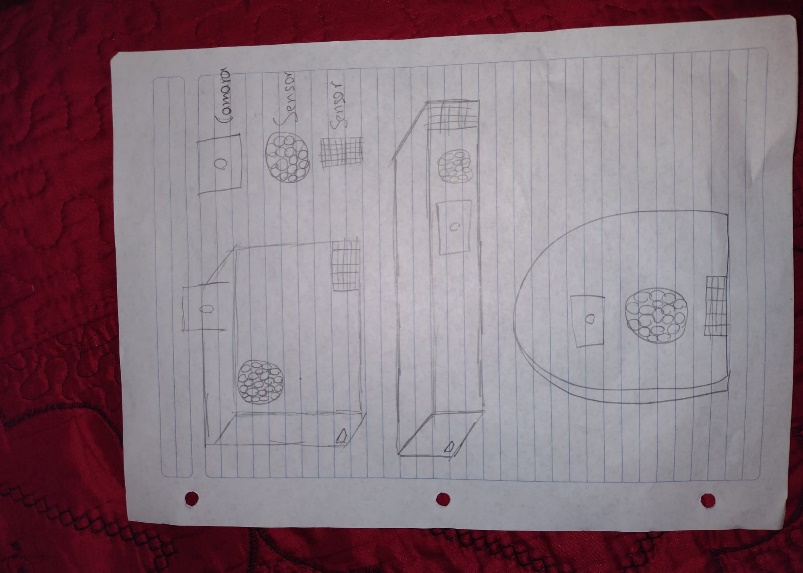 Camara
Sensor
Sensor